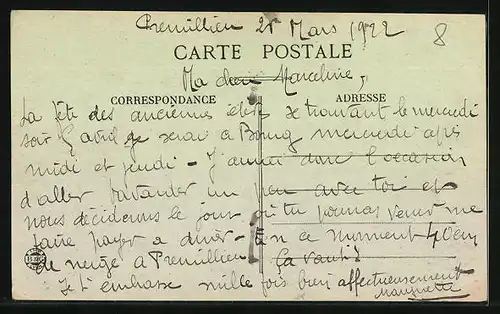 Premillieu 25 Mars 1922
8
CARTE POSTALE
Ma chère Marceline,
CORRESPONDANCE
ADRESSE
La fête des anciennes élèves se trouvant le mercredi
soir 5 avril je serai à Bourg mercredi après
midi et jeudi - J'aurai donc l'occasion
d'aller bavarder un peu avec toi et
nous déciderons le jour où tu pourras venir me
faire à dîner - En ce moment 40 cm
de neige à Premillieu Ça va
Je t'embrasse mille fois bien affectueusement
Marguerite